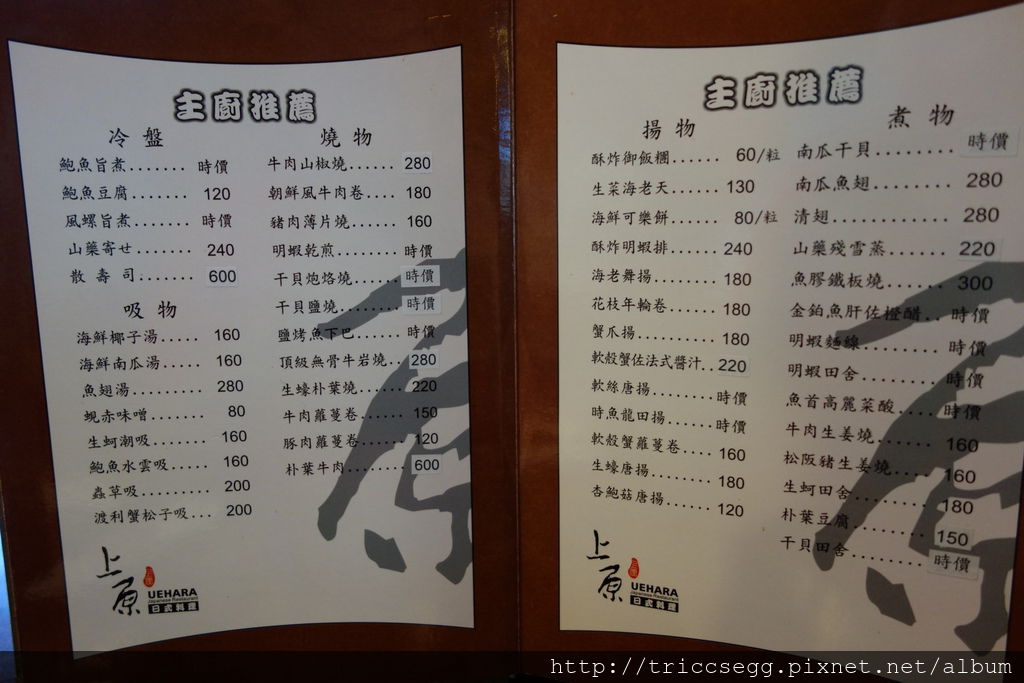 主廚推薦
冷盤
鮑魚旨煮....... 時價
鮑魚豆腐....... 120
風螺旨煮....... 時價
山藥寄せ....... 240
散壽司....... 600
吸物
海鮮椰子湯..... 160
海鮮南瓜湯..... 160
魚翅湯......... 280
蜆赤味噌....... 80
生蚵潮吸....... 160
鮑魚水雲吸..... 160
蟲草吸......... 200
渡利蟹松子吸... 200
燒物
牛肉山椒燒..... 280
朝鮮風牛肉卷.... 180
豬肉薄片燒..... 160
明蝦乾煎....... 時價
干貝炮烙燒..... 時價
干貝鹽燒....... 時價
鹽烤魚下巴..... 時價
頂級無骨牛岩燒.. 280
生蠔朴葉燒..... 220
牛肉蘿蔓卷..... 150
豚肉蘿蔓卷..... 120
朴葉牛肉....... 600
上原
UEHARA
Japanese Restaurant
日式料理
主廚推薦
揚物
酥炸御飯糰...... 60/粒
生菜海老天...... 130
海鮮可樂餅...... 80/粒
酥炸明蝦排...... 240
海老舞揚....... 180
花枝年輪卷...... 180
蟹爪揚......... 180
軟殼蟹佐法式醬汁.. 220
軟絲唐揚....... 時價
時魚龍田揚...... 時價
軟殼蟹蘿蔓卷.... 160
生蠔唐揚....... 180
杏鮑菇唐揚...... 120
煮物
南瓜干貝........ 時價
南瓜魚翅........ 280
清翅........... 280
山藥殘雪蒸...... 220
魚膠鐵板燒...... 300
金鉑魚肝佐橙醋.. 時價
明蝦麵線........ 時價
明蝦田舍........ 時價
魚首高麗菜酸.... 時價
牛肉生姜燒...... 160
松阪豬生姜燒.... 160
生蚵田舍........ 180
朴葉豆腐........ 150
干貝田舍........ 時價
上原
UEHARA
Japanese Restaurant
日式料理
http://triccsegg.pixnet.net/album